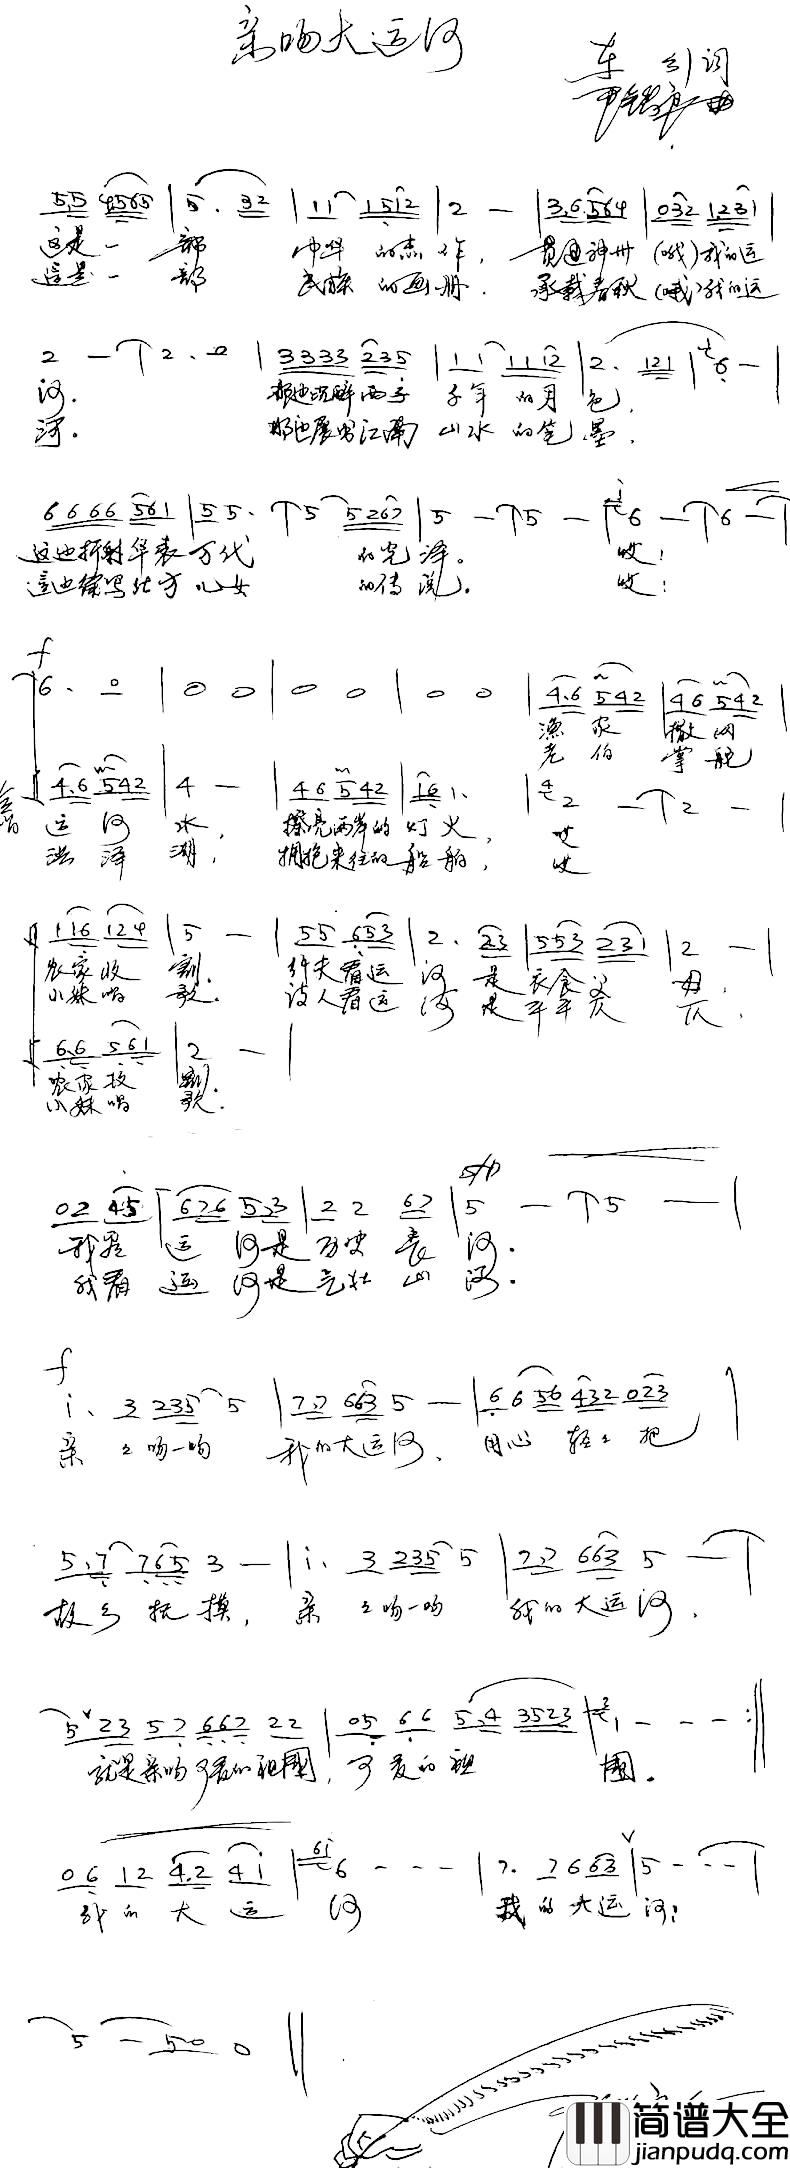 亲吻大运河
车 引词
曲
5.5 4565 | 5. 32 | 11 1512 | 2 — | 3.6 564 | 032 1231 |
这是一 部 中华 的杰作， 贯通神州 (哦)我的运
这是一 部 民族 的画册． 承载春秋 (哦)我的运
2 — | 2. 0 | 3333 235 | 11 1112 | 2. 121 | 6 — |
河． 那也沉醉两千 年 的月色，
河． 那也展开江南 山水 的笔墨．
6666 561 | 55. | 5 5267 | 5 — | 5 — | 6 — | 6 — |
这也折射华表万代 的光泽。 哎！
这也续写北方儿女 的传说． 哎！
f
6. 0 | 0 0 | 0 0 | 0 0 | 4.6 542 | 46 542 |
渔 家 撒网
老 伯 掌舵
4.6 542 | 4 — | 46 542 | 161. | 2 — | 2 — |
运 河 水， 擦亮两岸的灯火， 哎
洪 泽 湖， 拥抱来往的船舶， 哎
116 124 | 5 — | 55 653 | 2. 23 | 553 231 | 2 — |
农家收 割． 纤夫看运 河 是 衣食父 母．
小妹唱 歌． 诗人看运 河 是
6.6 561 | 2 — |
农家收 割．
小妹唱 歌．
02 45 | 676 5.3 | 22 67 | 5 — | 5 — |
我看 运 河是 历史 长 河．
我看 运 河是 气壮 山 河．
f
i. 3 235 5 | 7.7 663 5 — | 66 56 432 023 |
亲 吻一吻 我的大运河， 用心 轻 把
5.7 765 3 — | i. 3 235 5 | 7.7 663 5 — |
故乡 抚摸， 亲 吻一吻 我的大运河，
5 23 57 667 22 | 05 66 5.4 3523 | 1 — — — :||
就是亲吻可爱的祖国， 可爱的祖 国．
06 12 4.2 4i | 6 — — — | 7. 7663 | 5 — — — |
我的大运 河 我的大运河！
5 — 50 0 ||
简谱大全
jianpudq.com